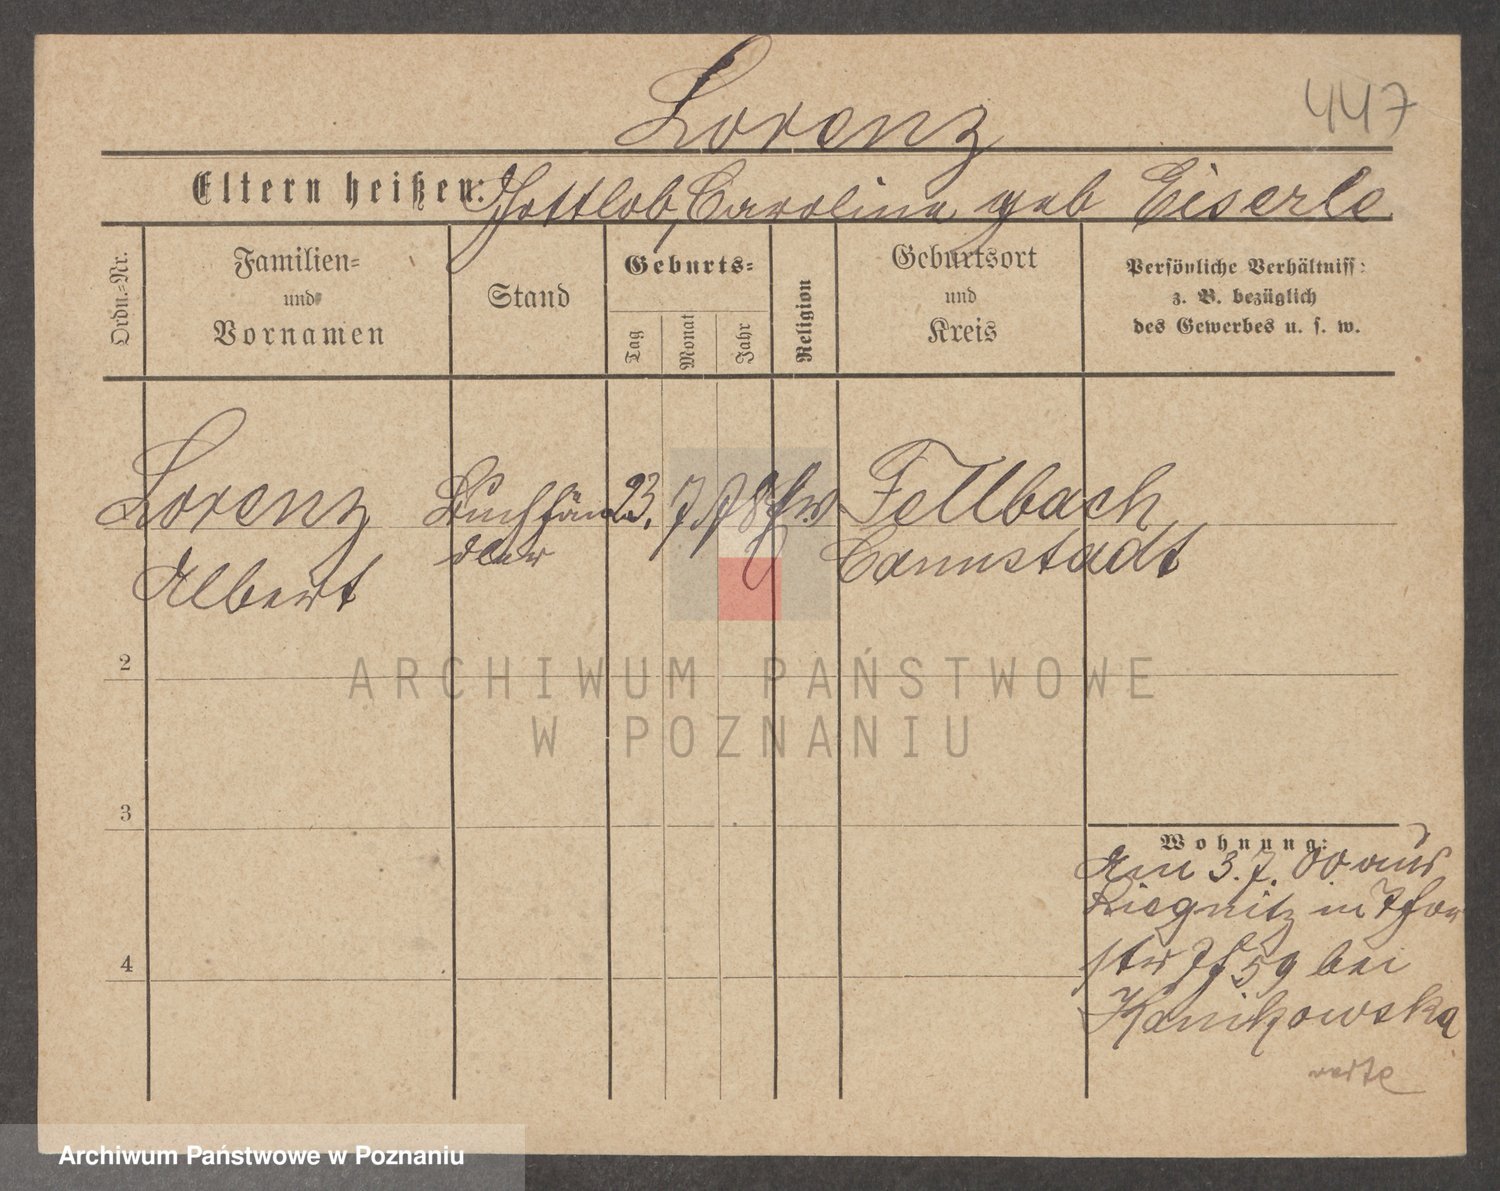 Lorenz
447
Eltern heißen: Gottlob, Caroline geb Eiserle
Ordn.-Nr.
Familien-
und
Vornamen
Stand
Geburts-
Tag
Monat
Jahr
Religion
Geburtsort
und
Kreis
Persönliche Verhältniss:
z. B. bezüglich
des Gewerbes u. s. w.
Lorenz
Albert
Buchhän
dler
23. 7.
Fellbach
Cannstadt
2
3
4
Wohnung:
Am 3.7.00 aus
Liegnitz in
59 bei
Kanikowska
verte
ARCHIWUM PAŃSTWOWE
W POZNANIU
Archiwum Państwowe w Poznaniu